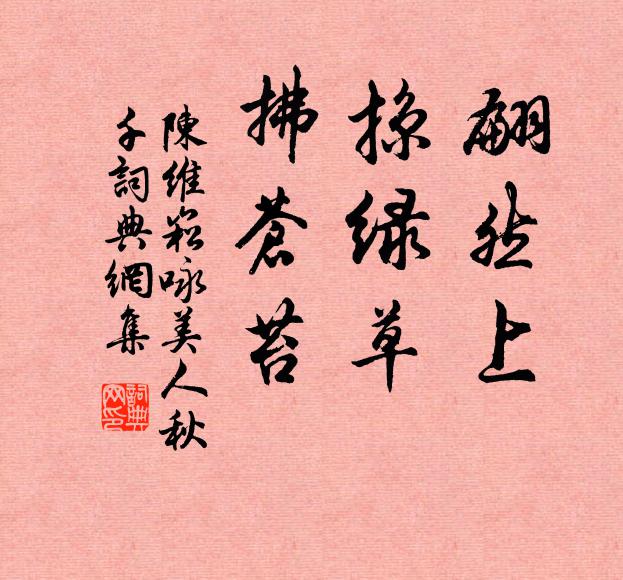 翩然上
掠绿草
拂蒼苔
陳維崧咏美人秋
千詞典網集
詞典网印